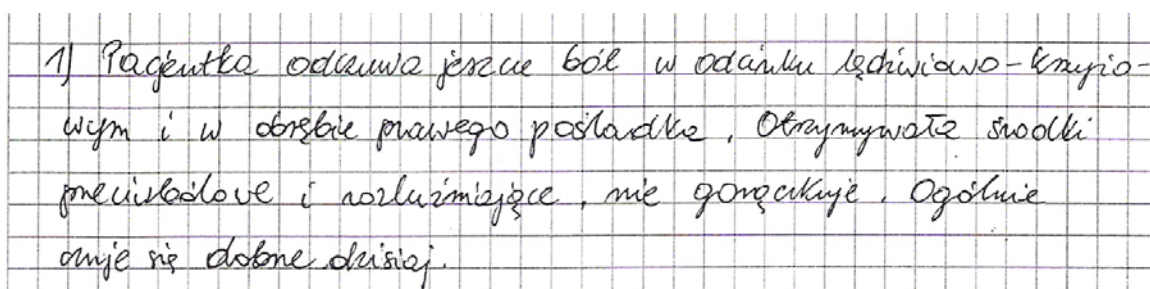 1) Pacjentka odczuwa jeszcze ból w odcinku lędźwiowo-krzyżo-
wym i w obrębie prawego pośladka. Otrzymywała środki
przeciwbólowe i rozluźniające, nie gorączkuje. Ogólnie
czuje się dobrze dzisiaj.